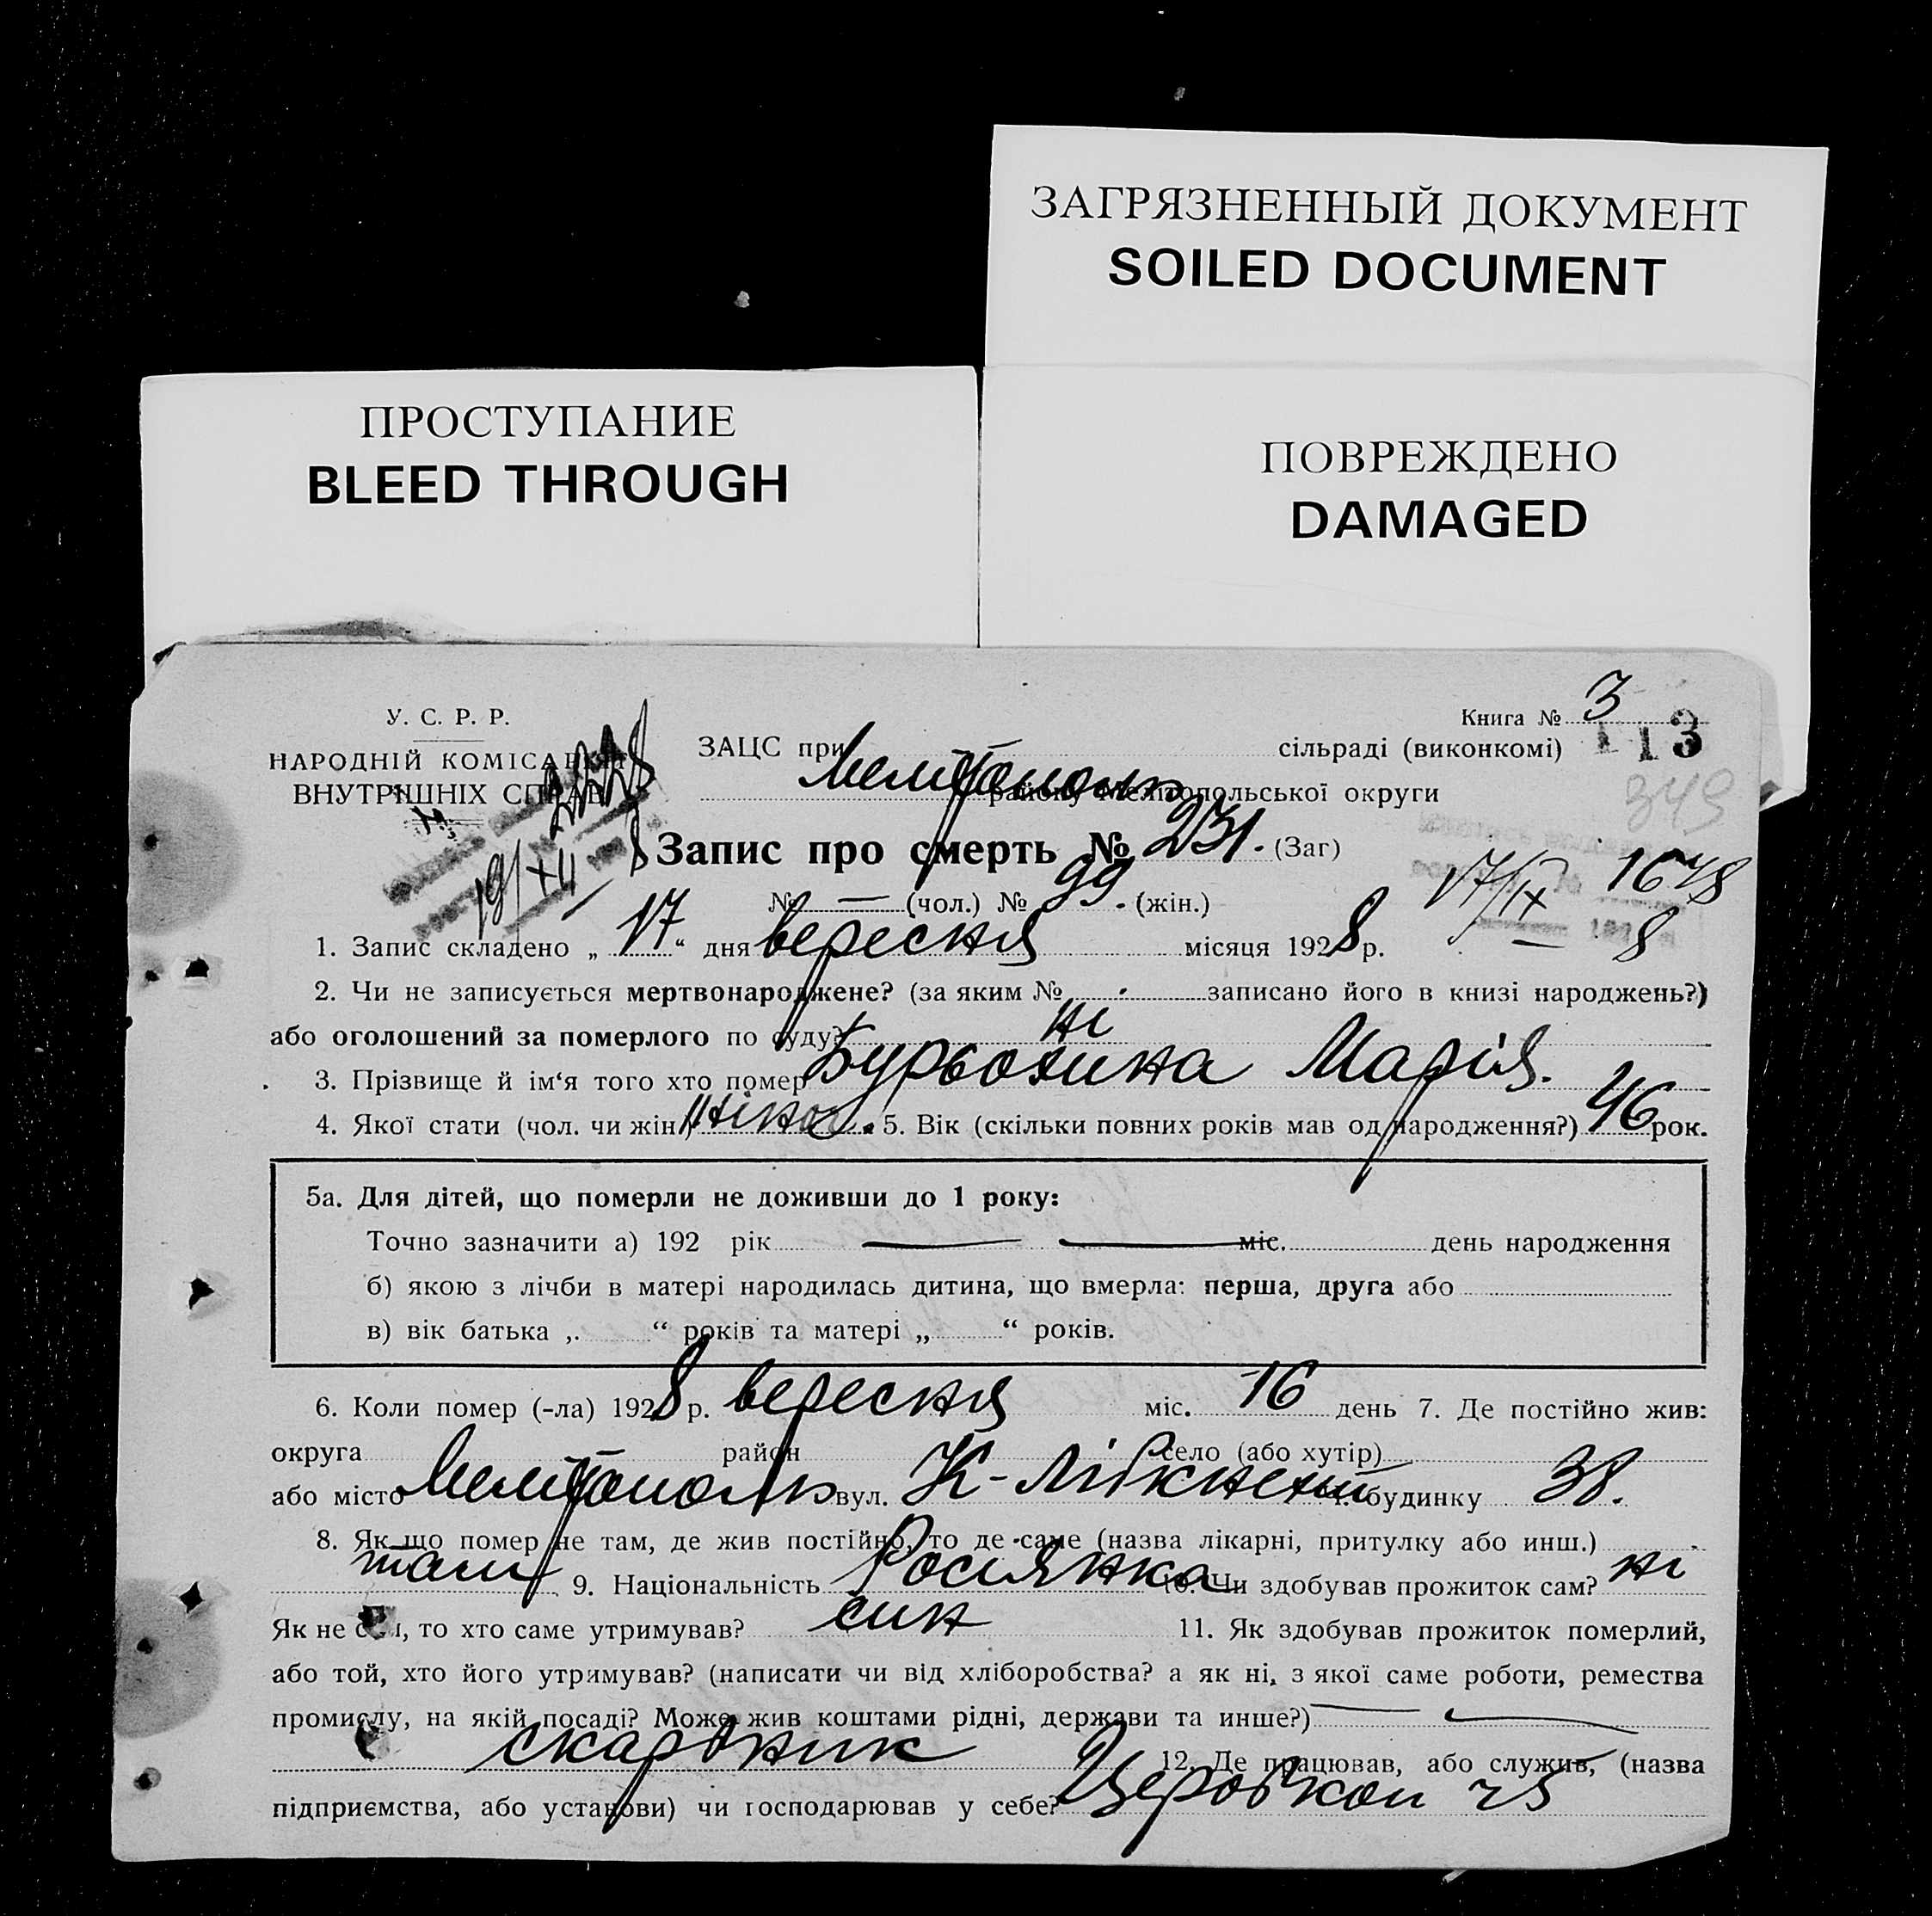 ЗАГРЯЗНЕННЫЙ ДОКУМЕНТ
SOILED DOCUMENT
ПРОСТУПАНИЕ
BLEED THROUGH
ПОВРЕЖДЕНО
DAMAGED
У. С. Р. Р.
НАРОДНІЙ КОМІСАРІЯТ
ВНУТРІШНІХ СПРАВ
Книга № 3
113
349
ЗАЦС при Мелітополь сільраді (виконкомі)
району Мелітопольської округи
Запис про смерть № 231. (Заг)
№ — (чол.) № 99. (жін.)
19/XII
17/IX 1648
8
1. Запис складено „ 17 “ дня вересня місяця 1928 р.
2. Чи не записується мертвонароджене? (за яким № записано його в книзі народжень?)
або оголошений за померлого по суду? ні
3. Прізвище й ім‘я того хто помер Марія.
4. Якої стати (чол. чи жін.) жіноч. 5. Вік (скільки повних років мав од народження?) 46 рок.
5а. Для дітей, що померли не доживши до 1 року:
Точно зазначити а) 192 рік — — міс. день народження
б) якою з лічби в матері народилась дитина, що вмерла: перша, друга або
в) вік батька „ “ років та матері „ “ років.
6. Коли помер (-ла) 1928 р. вересня міс. 16 день 7. Де постійно жив:
округа район село (або хутір)
або місто Мелітополь вул. К-Лібкнехт ч. будинку 38.
8. Як що помер не там, де жив постійно, то де саме (назва лікарні, притулку або инш.)
там 9. Національність Росиянка 10. Чи здобував прожиток сам? ні
Як не сам, то хто саме утримував? син 11. Як здобував прожиток померлий,
або той, хто його утримував? (написати чи від хліборобства? а як ні, з якої саме роботи, ремества
промислу, на якій посаді? Може жив коштами рідні, держави та инше?) — —
скарбник 12. Де працював, або служив, (назва
підприємства, або установи) чи господарював у себе? Церобкоп ч5